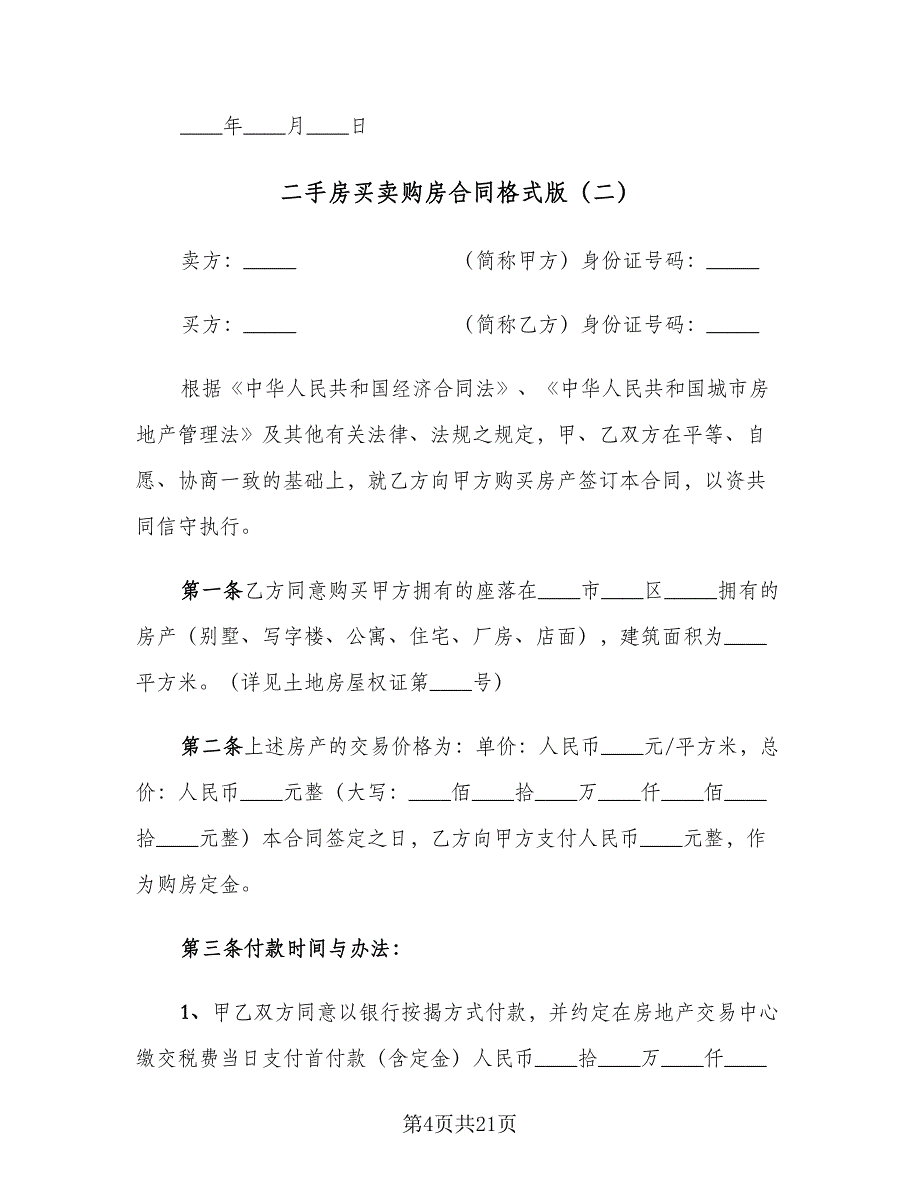 ____年____月____日
二手房买卖购房合同格式版（二）
卖方：_____ （简称甲方）身份证号码：_____
买方：_____ （简称乙方）身份证号码：_____
根据《中华人民共和国经济合同法》、《中华人民共和国城市房
地产管理法》及其他有关法律、法规之规定，甲、乙双方在平等、自
愿、协商一致的基础上，就乙方向甲方购买房产签订本合同，以资共
同信守执行。
第一条乙方同意购买甲方拥有的座落在____市____区_____拥有的
房产（别墅、写字楼、公寓、住宅、厂房、店面），建筑面积为____
平方米。（详见土地房屋权证第____号）
第二条上述房产的交易价格为：单价：人民币____元/平方米，总
价：人民币____元整（大写：____佰____拾____万____仟____佰____
拾____元整）本合同签定之日，乙方向甲方支付人民币____元整，作
为购房定金。
第三条付款时间与办法：
1、甲乙双方同意以银行按揭方式付款，并约定在房地产交易中心
缴交税费当日支付首付款（含定金）人民币____拾____万____仟____
第4页共21页